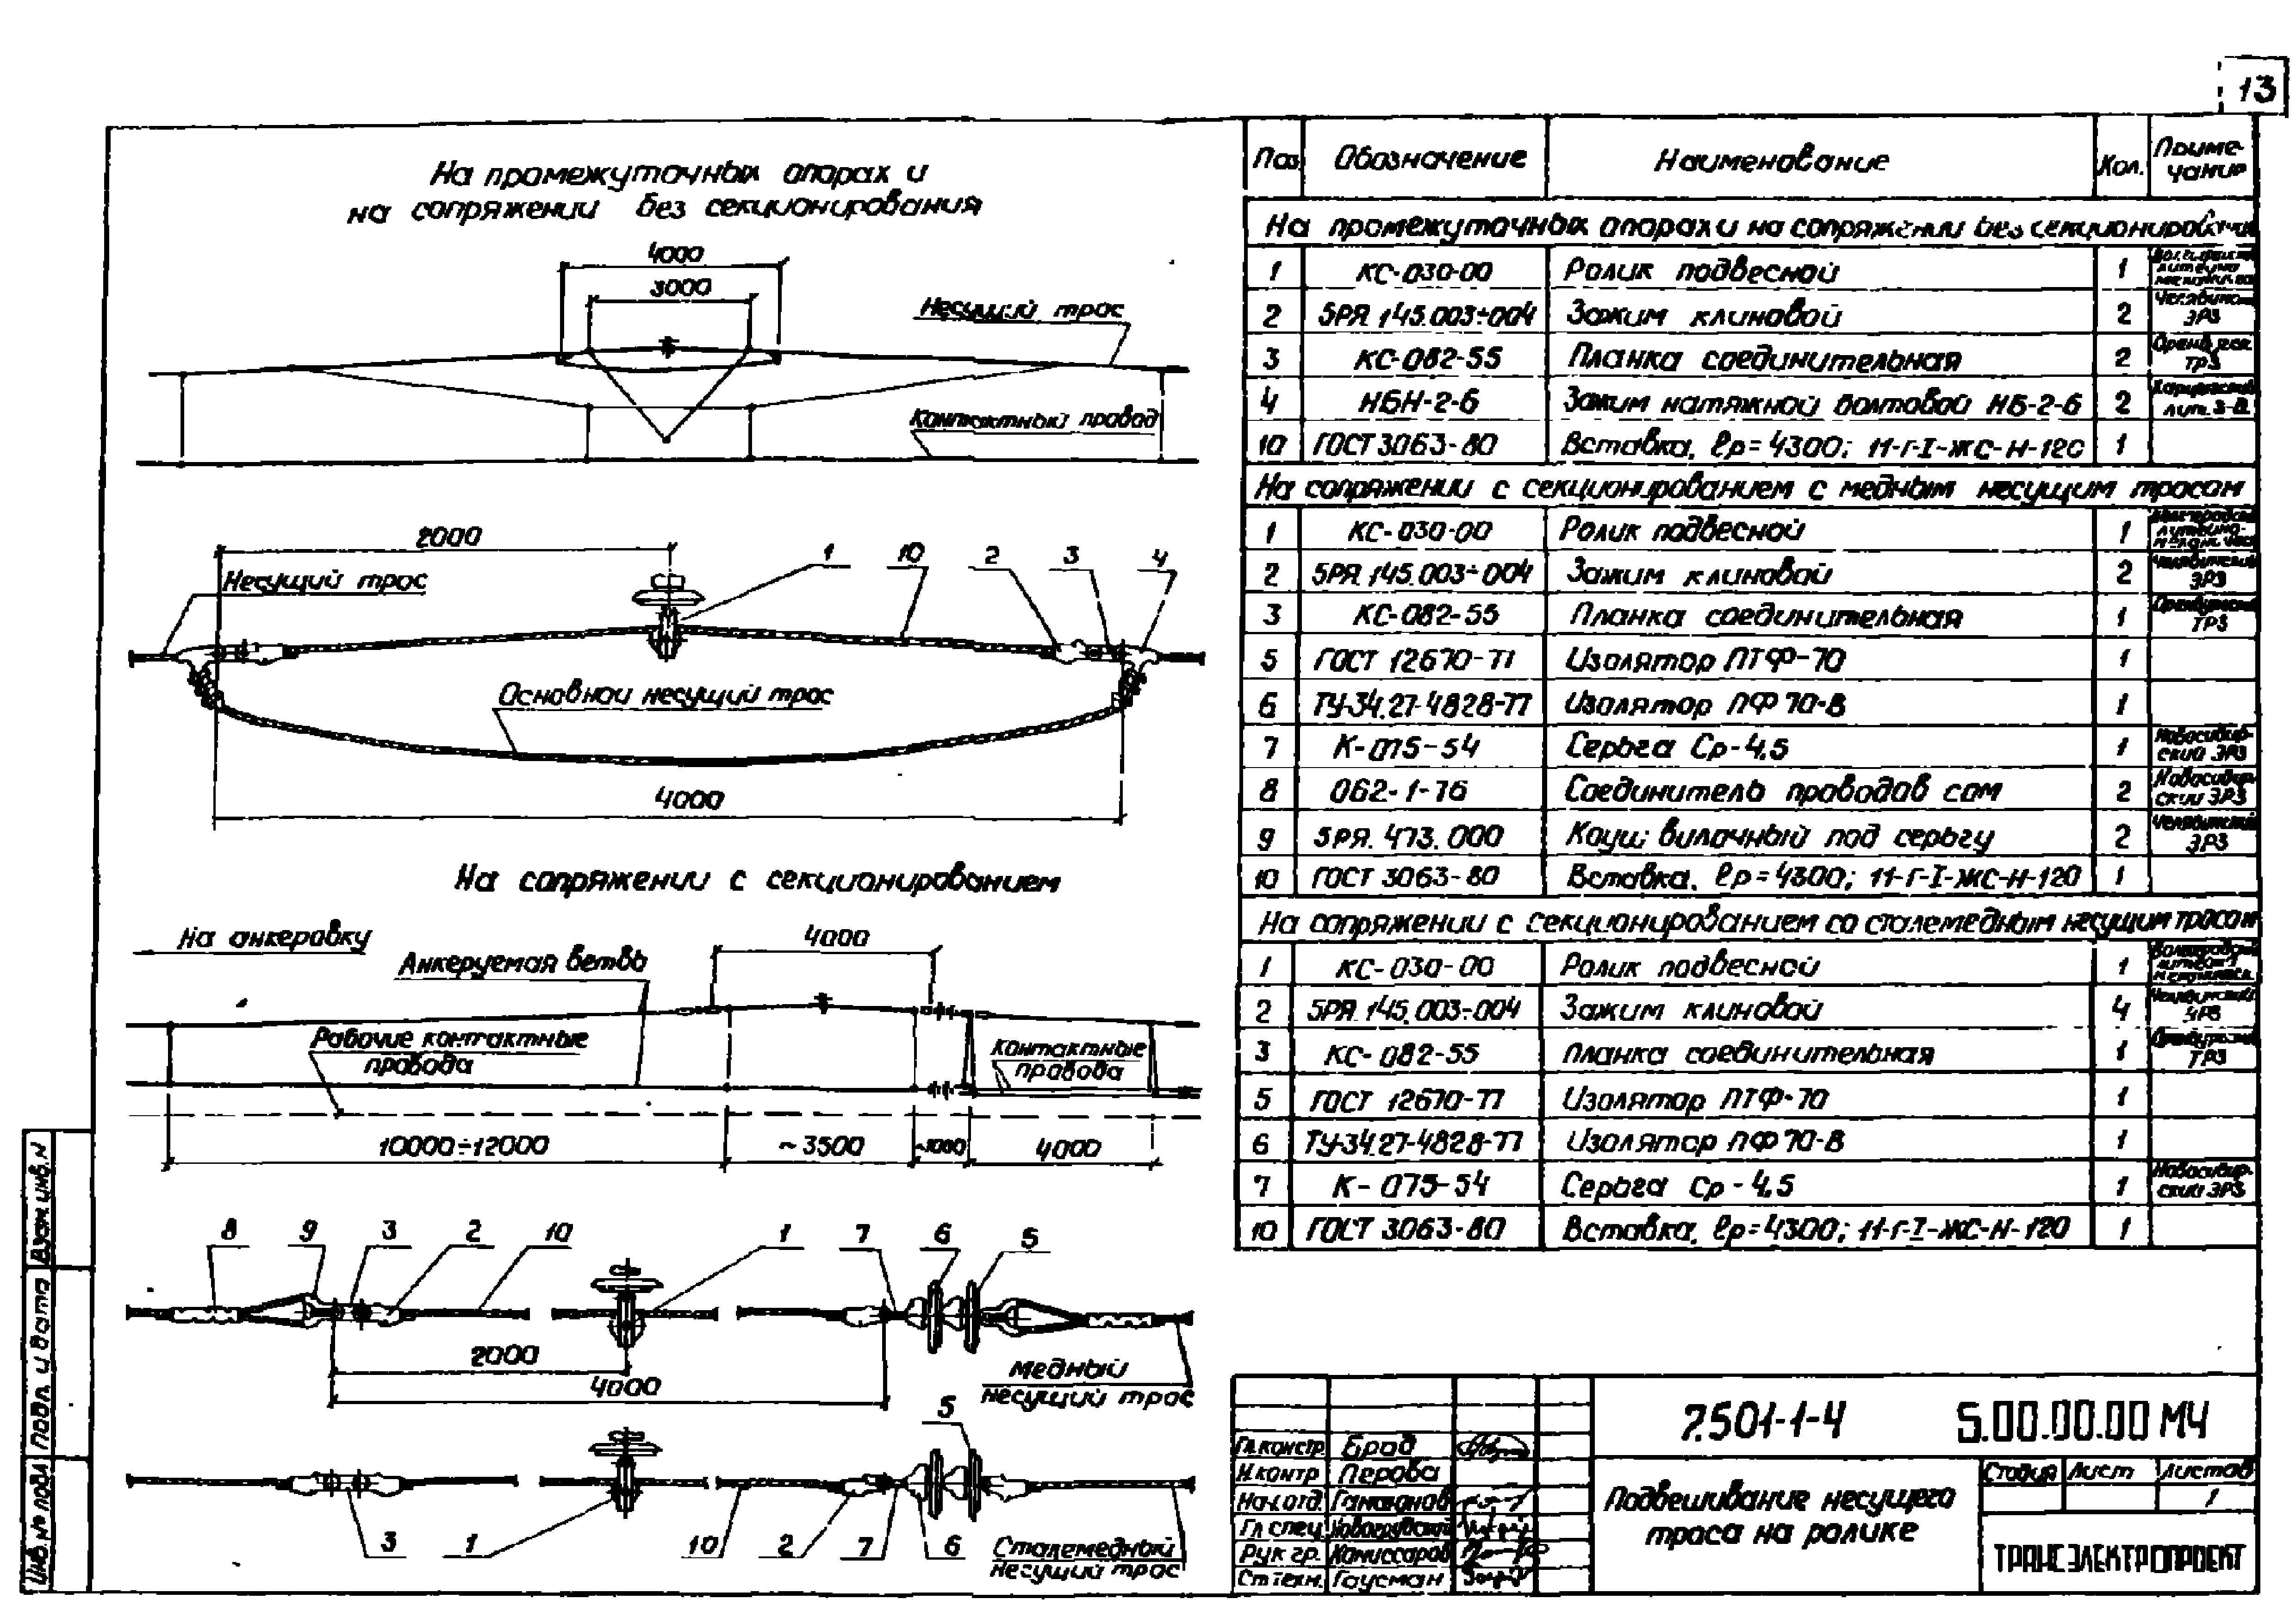 13
На промежуточных опорах и
на сопряжении без секционирования
4000
3000
Несущий трос
Контактный провод
2000
1 10 2 3 4
Несущий трос
Основной несущий трос
4000
На сопряжении с секционированием
На анкеровку
4000
Анкеруемая ветвь
Рабочие контактные
провода
Контактные
провода
10000÷12000 ~3500 ~1000 4000
8 9 3 2 10 1 7 6 5
2000
4000
Медный
несущий трос
5
3 1 10 2 7 6
Сталемедный
несущий трос
Поз Обозначение Наименование Кол. Приме-
чание
На промежуточных опорах и на сопряжении без секционирования
1 КС-030-00 Ролик подвесной 1
2 5РЯ.145.003÷004 Зажим клиновой 2 ЭРЗ
3 КС-082-55 Планка соединительная 2 ТРЗ
4 НБН-2-6 Зажим натяжной болтовой НБ-2-6 2
10 ГОСТ 3063-80 Вставка, ℓр=4300; 11-Г-I-ЖС-Н-120 1
На сопряжении с секционированием с медным несущим тросом
1 КС-030-00 Ролик подвесной 1
2 5РЯ.145.003÷004 Зажим клиновой 2 ЭРЗ
3 КС-082-55 Планка соединительная 1 ТРЗ
5 ГОСТ 12670-71 Изолятор ПТФ-70 1
6 ТУ-34.27-4828-77 Изолятор ПФ70-В 1
7 К-075-54 Серьга Ср-4,5 1 Новосибир-
ский ЭРЗ
8 062-1-76 Соединитель проводов сом 2 Новосибир-
ский ЭРЗ
9 5РЯ.473.000 Коуш вилочный под серьгу 2 Челябинский
ЭРЗ
10 ГОСТ 3063-80 Вставка, ℓр=4300; 11-Г-I-ЖС-Н-120 1
На сопряжении с секционированием со сталемедным несущим тросом
1 КС-030-00 Ролик подвесной 1
2 5РЯ.145.003÷004 Зажим клиновой 4 ЭРЗ
3 КС-082-55 Планка соединительная 1 ТРЗ
5 ГОСТ 12670-77 Изолятор ПТФ-70 1
6 ТУ-34.27-4828-77 Изолятор ПФ70-В 1
7 К-075-54 Серьга Ср-4,5 1 Новосибир-
ский ЭРЗ
10 ГОСТ 3063-80 Вставка, ℓр=4300; 11-Г-I-ЖС-Н-120 1
7.501-1-4 5.00.00.00 МЧ
Гл.констр. Брод
Н.контр Перова
Нач.отд.
Гл спец
Рук гр. Комиссаров
Ст техн. Гаусман
Подвешивание несущего
троса на ролике
Стадия Лист Листов
1
ТРАНСЭЛЕКТРОПРОЕКТ
Инв.№ подл Подп. и дата Взам. инв. N